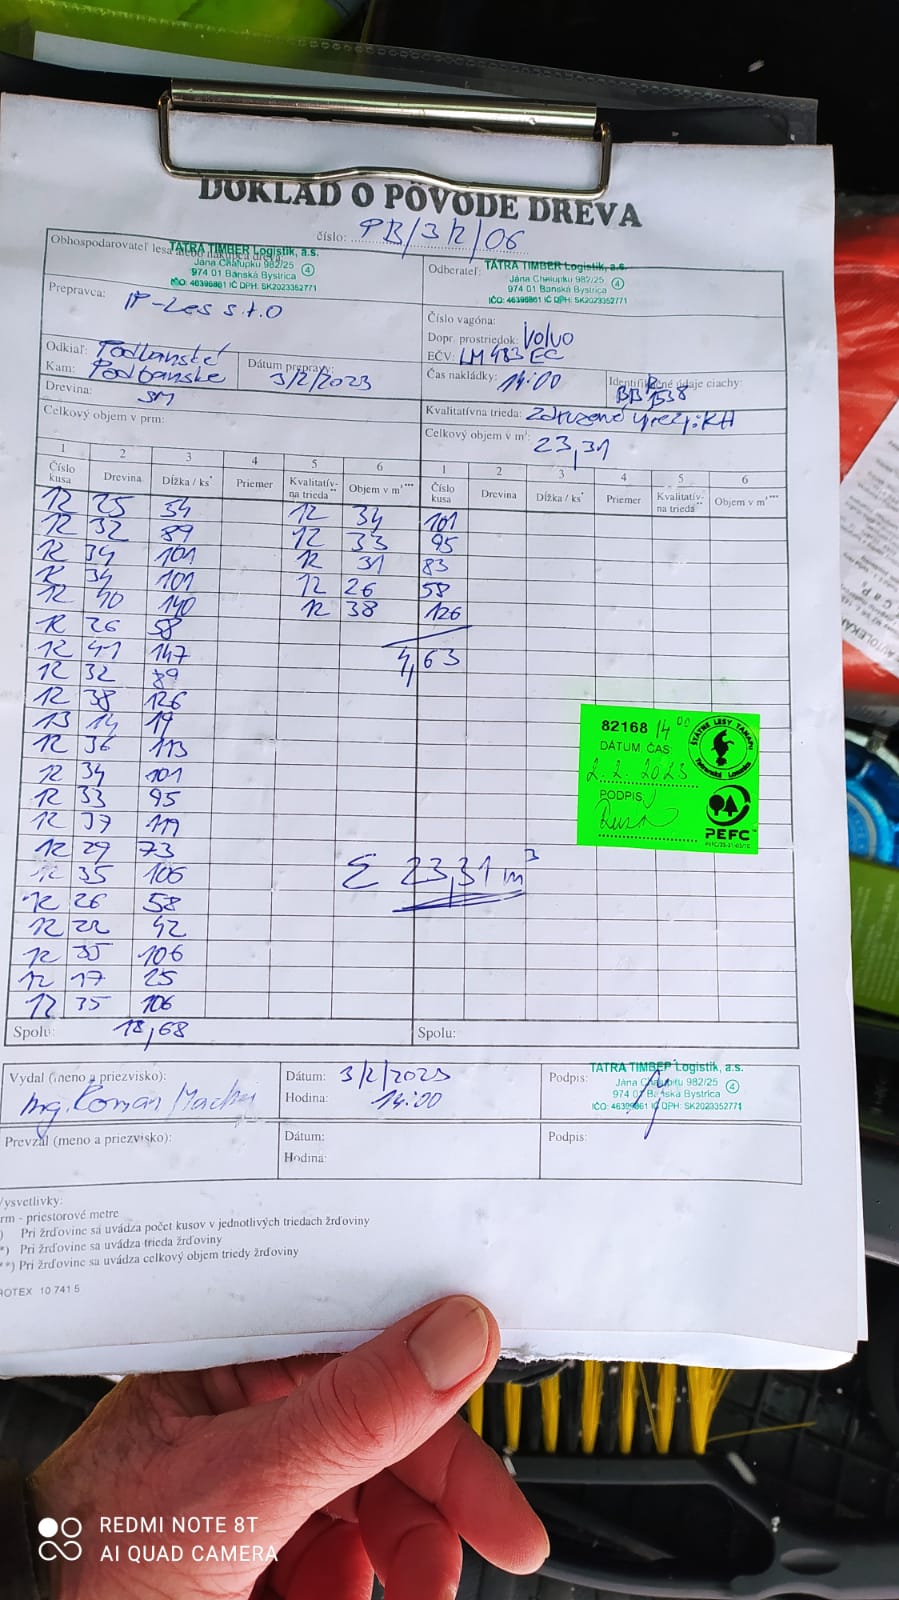 DOKLAD O PÔVODE DREVA
číslo: PB/3/2/06
Obhospodarovateľ lesa alebo nákupca dreva:
TATRA TIMBER Logistik, a.s.
Jána Chalupku 982/25
974 01 Banská Bystrica
IČO: 46396861 IČ DPH: SK2023352771
4
Odberateľ: TATRA TIMBER Logistik, a.s.
Jána Chalupku 982/25
974 01 Banská Bystrica
IČO: 46396861 IČ DPH: SK2023352771
4
Prepravca: IP-Les s.r.o
Číslo vagóna:
Dopr. prostriedok: Volvo
EČV: LM 483 EC
Odkiaľ: Podbanské
Kam: Podbanské
Dátum prepravy: 3/2/2023
Čas nakládky: 14:00
Identifikačné údaje ciachy:
BB 1538
Drevina: SM
Kvalitatívna trieda:
Celkový objem v prm:
Celkový objem v m³: 23,31
1 2 3 4 5 6 1 2 3 4 5 6
Číslo kusa Drevina Dĺžka / ks* Priemer Kvalitatív- na trieda** Objem v m³*** Číslo kusa Drevina Dĺžka / ks* Priemer Kvalitatív- na trieda** Objem v m³***
12 25 34 12 34 101
12 32 89 12 33 95
12 34 101 12 31 83
12 34 101 12 26 58
12 40 140 12 38 126
12 26 58
12 41 147 4,63
12 32 89
12 38 126
13 14 19
12 36 113
12 34 101
12 33 95
12 37 119
12 29 73
12 35 106
12 26 58
12 22 42
12 35 106
12 17 25
12 35 106
Σ 23,31 m³
82168 14 00
DÁTUM, ČAS
2. 2. 2023
PODPIS
ŠTÁTNE LESY TANAPU
Tatranská Lomnica
PEFC
Spolu: 18,68
Spolu:
Vydal (meno a priezvisko):
Ing. Roman
Dátum: 3/2/2023
Hodina: 14:00
Podpis:
TATRA TIMBER Logistik, a.s.
Jána Chalupku 982/25
974 01 Banská Bystrica
IČO: 46396861 IČ DPH: SK2023352771
4
Prevzal (meno a priezvisko):
Dátum:
Hodina:
Podpis:
Vysvetlivky:
rm - priestorové metre
) Pri žrďovine sa uvádza počet kusov v jednotlivých triedach žrďoviny
*) Pri žrďovine sa uvádza trieda žrďoviny
**) Pri žrďovine sa uvádza celkový objem triedy žrďoviny
ROTEX 10 741 5
REDMI NOTE 8T
AI QUAD CAMERA